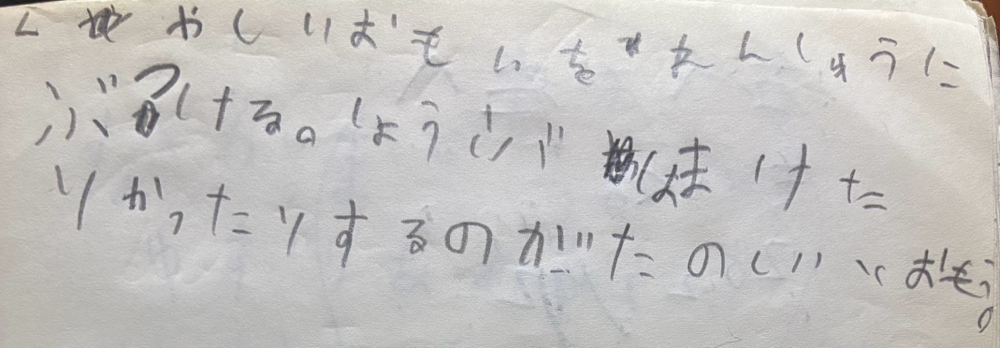 くやしいおもいをれんしゅうに
ぶつける。しょうぶはまけた
りかったりするのがたのしいとおもう。